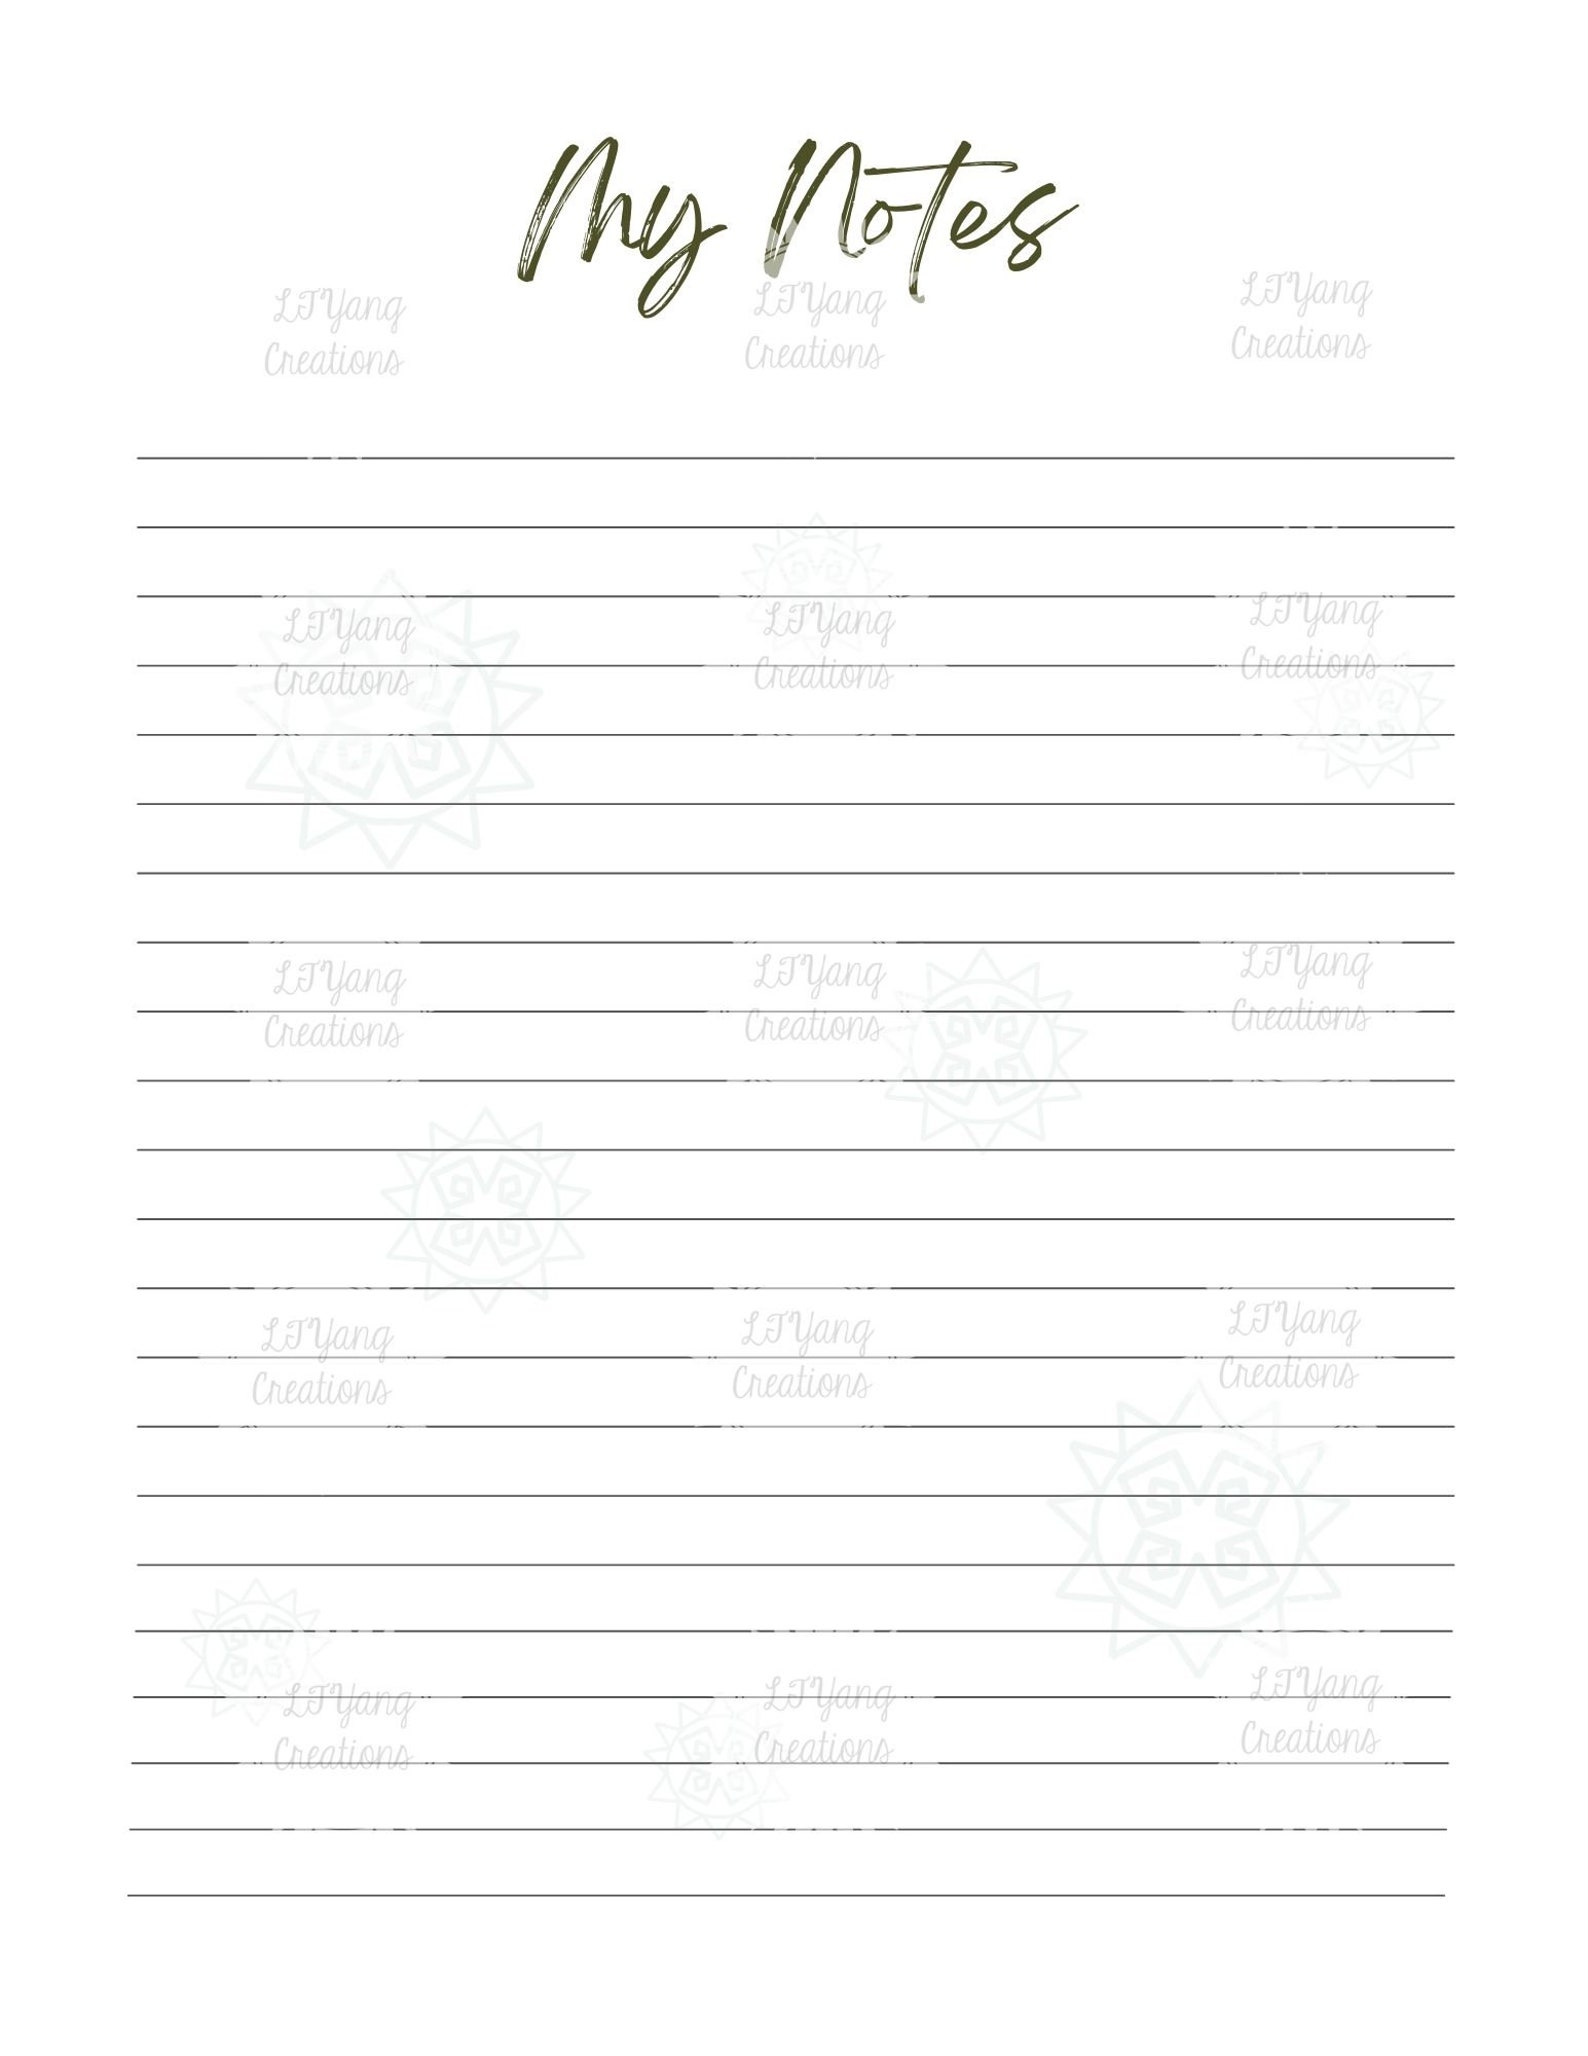 My Notes
LTYang LTYang LTYang
Creations Creations Creations
LTYang LTYang LTYang
Creations Creations Creations
LTYang LTYang LTYang
Creations Creations Creations
LTYang LTYang LTYang
Creations Creations Creations
LTYang LTYang LTYang
Creations Creations Creations